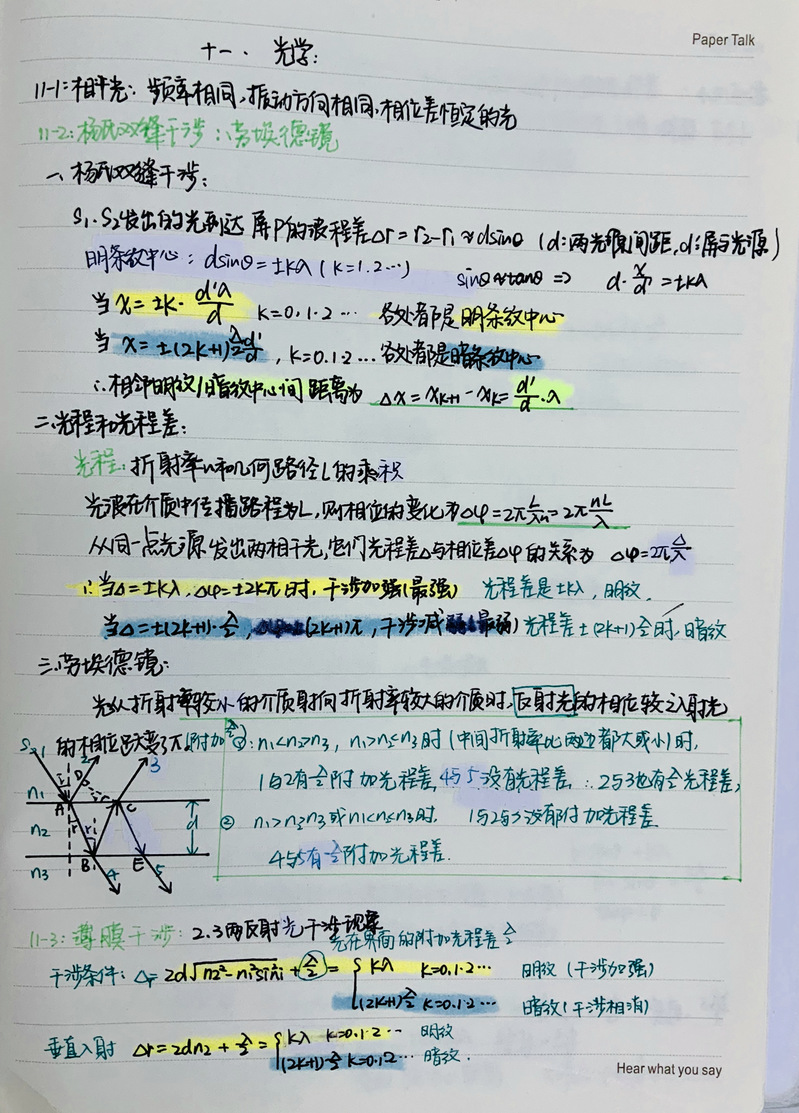 Paper Talk
十一、光学:
11-1:相干光:频率相同,振动方向相同,相位差恒定的光
11-2:杨氏双缝干涉:、劳埃德镜
一、杨氏双缝干涉:
S₁、S₂发出的光到达屏P的波程差Δr=r₂-r₁≈dsinθ (d:两光源间距,d':屏与光源)
明条纹中心:dsinθ=±kλ(k=1.2…) sinθ≈tanθ => d·x/d'=±kλ
当 x=±k·d'λ/d k=0.1.2… 各处都是明条纹中心
当 x=±(2k+1)λ/2 d'/d, k=0.1.2…各处都是暗条纹中心
∴相邻明纹/暗纹中心间距离为 Δx=x_{k+1}-x_k=d'/d·λ
二、光程和光程差:
光程:折射率n和几何路径L的乘积
光波在介质中传播路程为L,则相位的变化为Δφ=2πL/λn=2πnL/λ
从同一点光源发出两相干光,它们光程差Δ与相位差Δφ的关系为 Δφ=2πΔ/λ
∴当Δ=±kλ,Δφ=±2kπ时,干涉加强(最强) 光程差是±kλ,明纹.
当Δ=±(2k+1)·λ/2, (2k+1)π,干涉减弱(最弱)光程差±(2k+1)λ/2时,暗纹
三、劳埃德镜:
光从折射率较小的介质射向折射率较大的介质时,反射光的相位较之入射光
的相位跃变了π.
附加λ/2 ①:n₁<n₂>n₃,n₁>n₂<n₃时(中间折射率比两边都大或小)时,
1与2有λ/2附加光程差,4与5没有光程差,∴2与3也有λ/2光程差,
② n₁>n₂>n₃或n₁<n₂<n₃时, 1与2与3没有附加光程差
4与5有λ/2附加光程差.
S 1 2 3
D
n₁ i
A C
n₂ r r d
B E
n₃ 4 5
11-3:薄膜干涉:2.3两反射光干涉现象
光在界面的附加光程差λ/2
干涉条件:Δr=2d√(n₂²-n₁²sin²i)+λ/2={kλ k=0.1.2… 明纹(干涉加强)
(2k+1)λ/2 k=0.1.2… 暗纹(干涉相消)
垂直入射 Δr=2dn₂+λ/2={kλ k=0.1.2… 明纹
(2k+1)λ/2 k=0.1.2… 暗纹.
Hear what you say